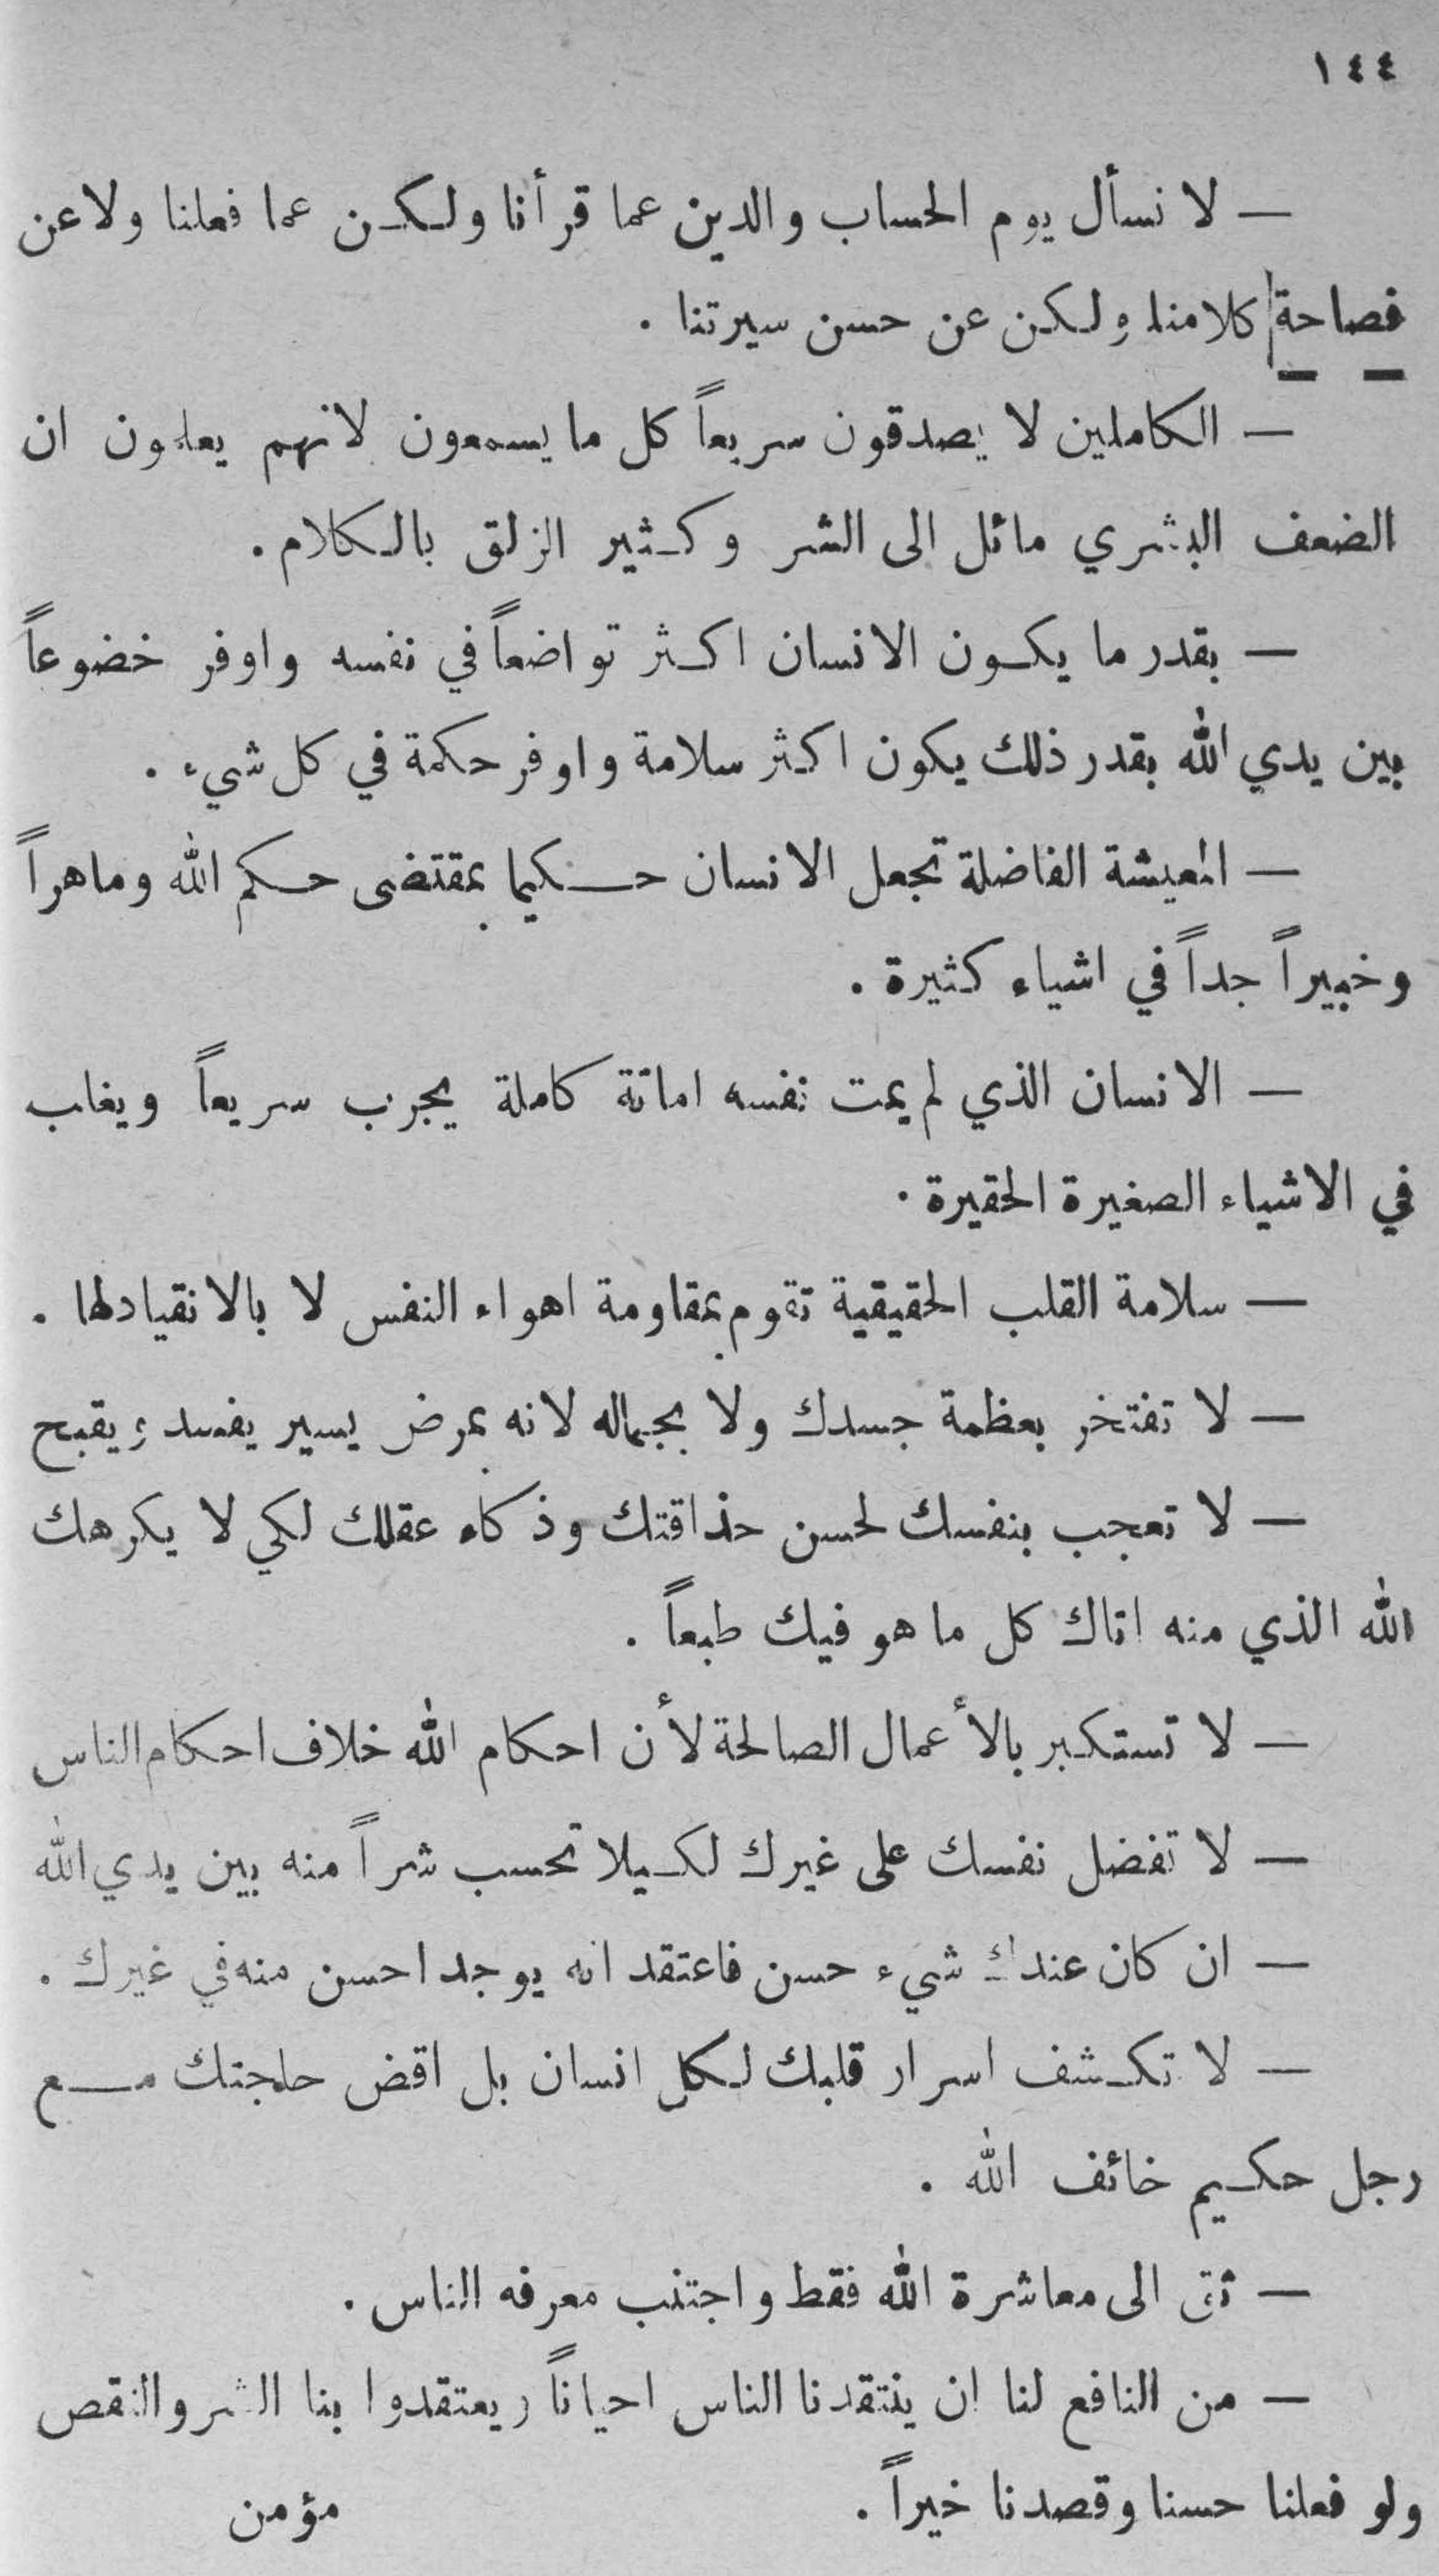 ١٤٤
— لا نسأل يوم الحساب والدين عما قرأنا ولكن عما فعلنا ولا عن
فصاحة كلامنا ولكن عن حسن سيرتنا .
— الكاملين لا يصدقون سريعاً كل ما يسمعون لانهم يعلمون ان
الضعف البشري مائل الى الشر وكثير الزلق بالكلام .
— بقدر ما يكون الانسان اكثر تواضعاً في نفسه واوفر خضوعاً
بين يدي الله بقدر ذلك يكون اكثر سلامة واوفر حكمة في كل شيء .
— المعيشة الفاضلة تجعل الانسان حكيما بمقتضى حكم الله وماهراً
وخبيراً جداً في اشياء كثيرة .
— الانسان الذي لم يمت نفسه اماتة كاملة يجرب سريعاً ويغلب
في الاشياء الصغيرة الحقيرة .
— سلامة القلب الحقيقية تقوم بمقاومة اهواء النفس لا بالانقيادلها .
— لا تفتخر بعظمة جسدك ولا بجماله لانه بمرض يسير يفسد ويقبح
— لا تعجب بنفسك لحسن حذاقتك وذكاء عقلك لكي لا يكرهك
الله الذي منه اتاك كل ما هو فيك طبعاً .
— لا تستكبر بالأعمال الصالحة لأن احكام الله خلاف احكام الناس
— لا تفضل نفسك على غيرك لكيلا تحسب شراً منه بين يدي الله
— ان كان عندك شيء حسن فاعتقد انه يوجد احسن منه في غيرك .
— لا تكشف اسرار قلبك لكل انسان بل اقض حاجتك مع
رجل حكيم خائف الله .
— تق الى معاشرة الله فقط واجتنب معرفه الناس .
— من النافع لنا ان ينتقدنا الناس احياناً ويعتقدوا بنا الشر والنقص
ولو فعلنا حسنا وقصدنا خيراً . مؤمن